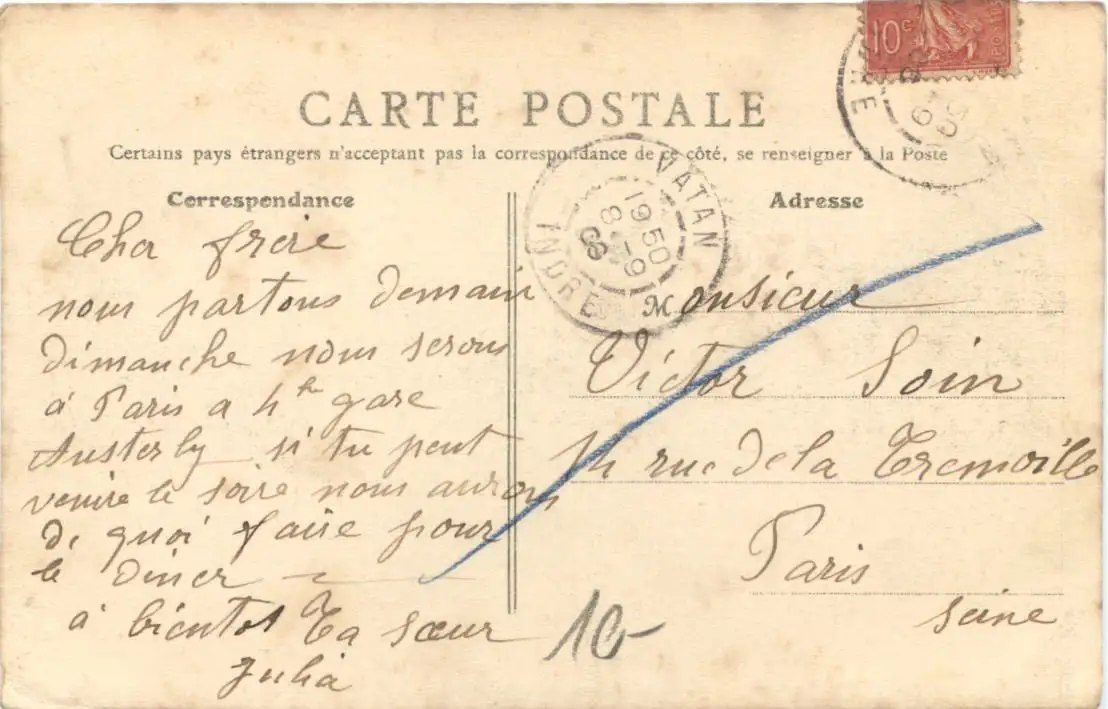 10c
CARTE POSTALE
Certains pays étrangers n'acceptant pas la correspondance de ce côté, se renseigner à la Poste
Correspondance
Cher frere
nous partons demain
dimanche nous serons
à Paris a 4 hre gare
Austerly si tu peut
venire le soire nous aurons
de quoi faire pour
le diner
à bientot Ta sœur
Julia
VATAN
19 50
8 - 9
08
INDRE
Adresse
Monsieur
Victor Soin
14 rue de la Tremoille
Paris
seine
10-